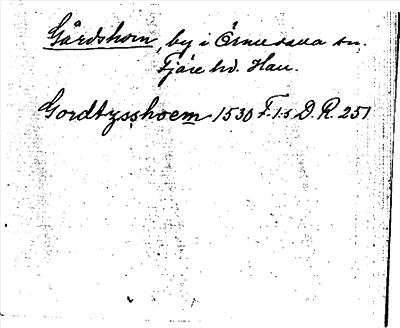 Gårdshorn, by i Örnevalla sn.
Fjäre hd. Hall.
Gordtzsshoem 1530 F. 1. s D. R. 251